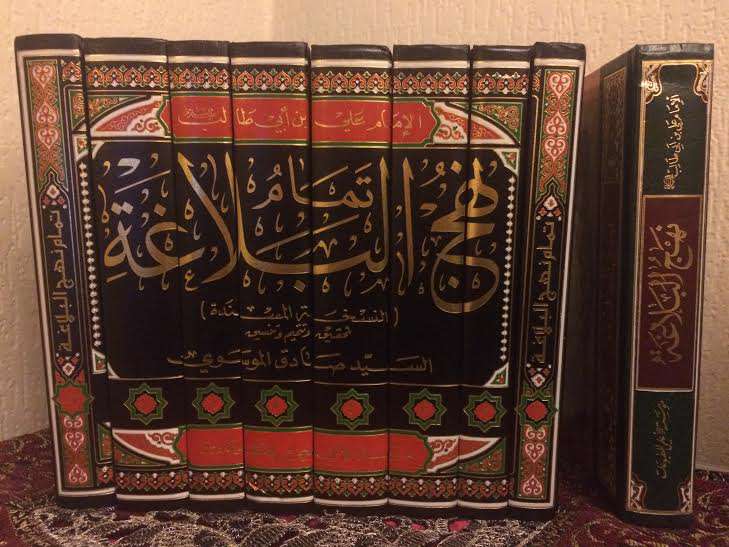 تمام نهج البلاغة
الإمام علي بن أبي طالب
تمام
نهج البلاغة
(النسخة المسندة)
تحقيق وتتميم وتنسيق
السيد صادق الموسوي
تمام نهج البلاغة
الإمام علي بن أبي طالب
نهج البلاغة
مؤسسة